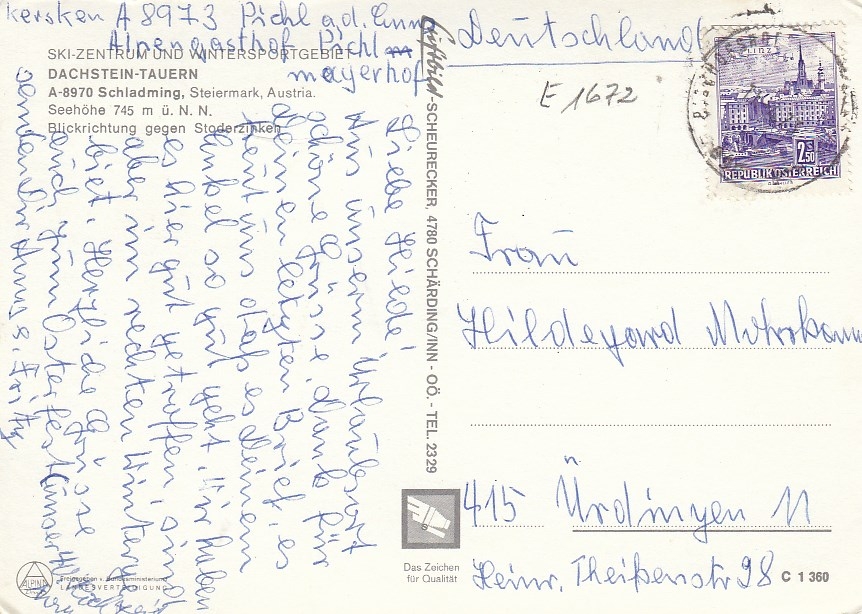 kersken A 8973 Pichl a.d. Enns
Alpengasthof Pichl
mayerhof
SKI-ZENTRUM UND WINTERSPORTGEBIET
DACHSTEIN-TAUERN
A-8970 Schladming, Steiermark, Austria.
Seehöhe 745 m ü. N. N.
Blickrichtung gegen Stoderzinken
Liebe Hilde!
Aus unserm Urlaubsort
schöne Grüsse. Dank für
deinen letzten Brief, es
freut uns daß es deinem
so gut geht. Wir haben
es hier gut getroffen, sind
aber im rechten Winterge-
biet. Herzliche Grüsse
euch zum Osterfest
senden dir Anna u. Fritz
Luftbild-SCHEURECKER, 4780 SCHÄRDING/INN - OÖ. - TEL. 2329
Deutschland
E 1672
LINZ
2.50
REPUBLIK ÖSTERREICH
Frau
Hildegard
415 Ürdingen 11
Heinr. Theißenstr 98
Das Zeichen
für Qualität
C 1 360
ALPINE
Freigegeben v. Bundesministerium f.
LANDESVERTEIDIGUNG